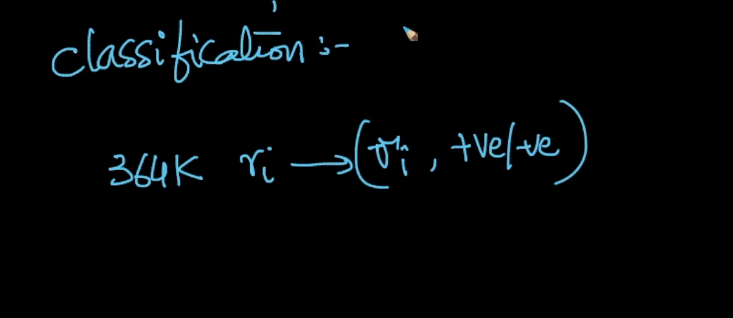 classification :-
364K ri → (vi, +ve/+ve)